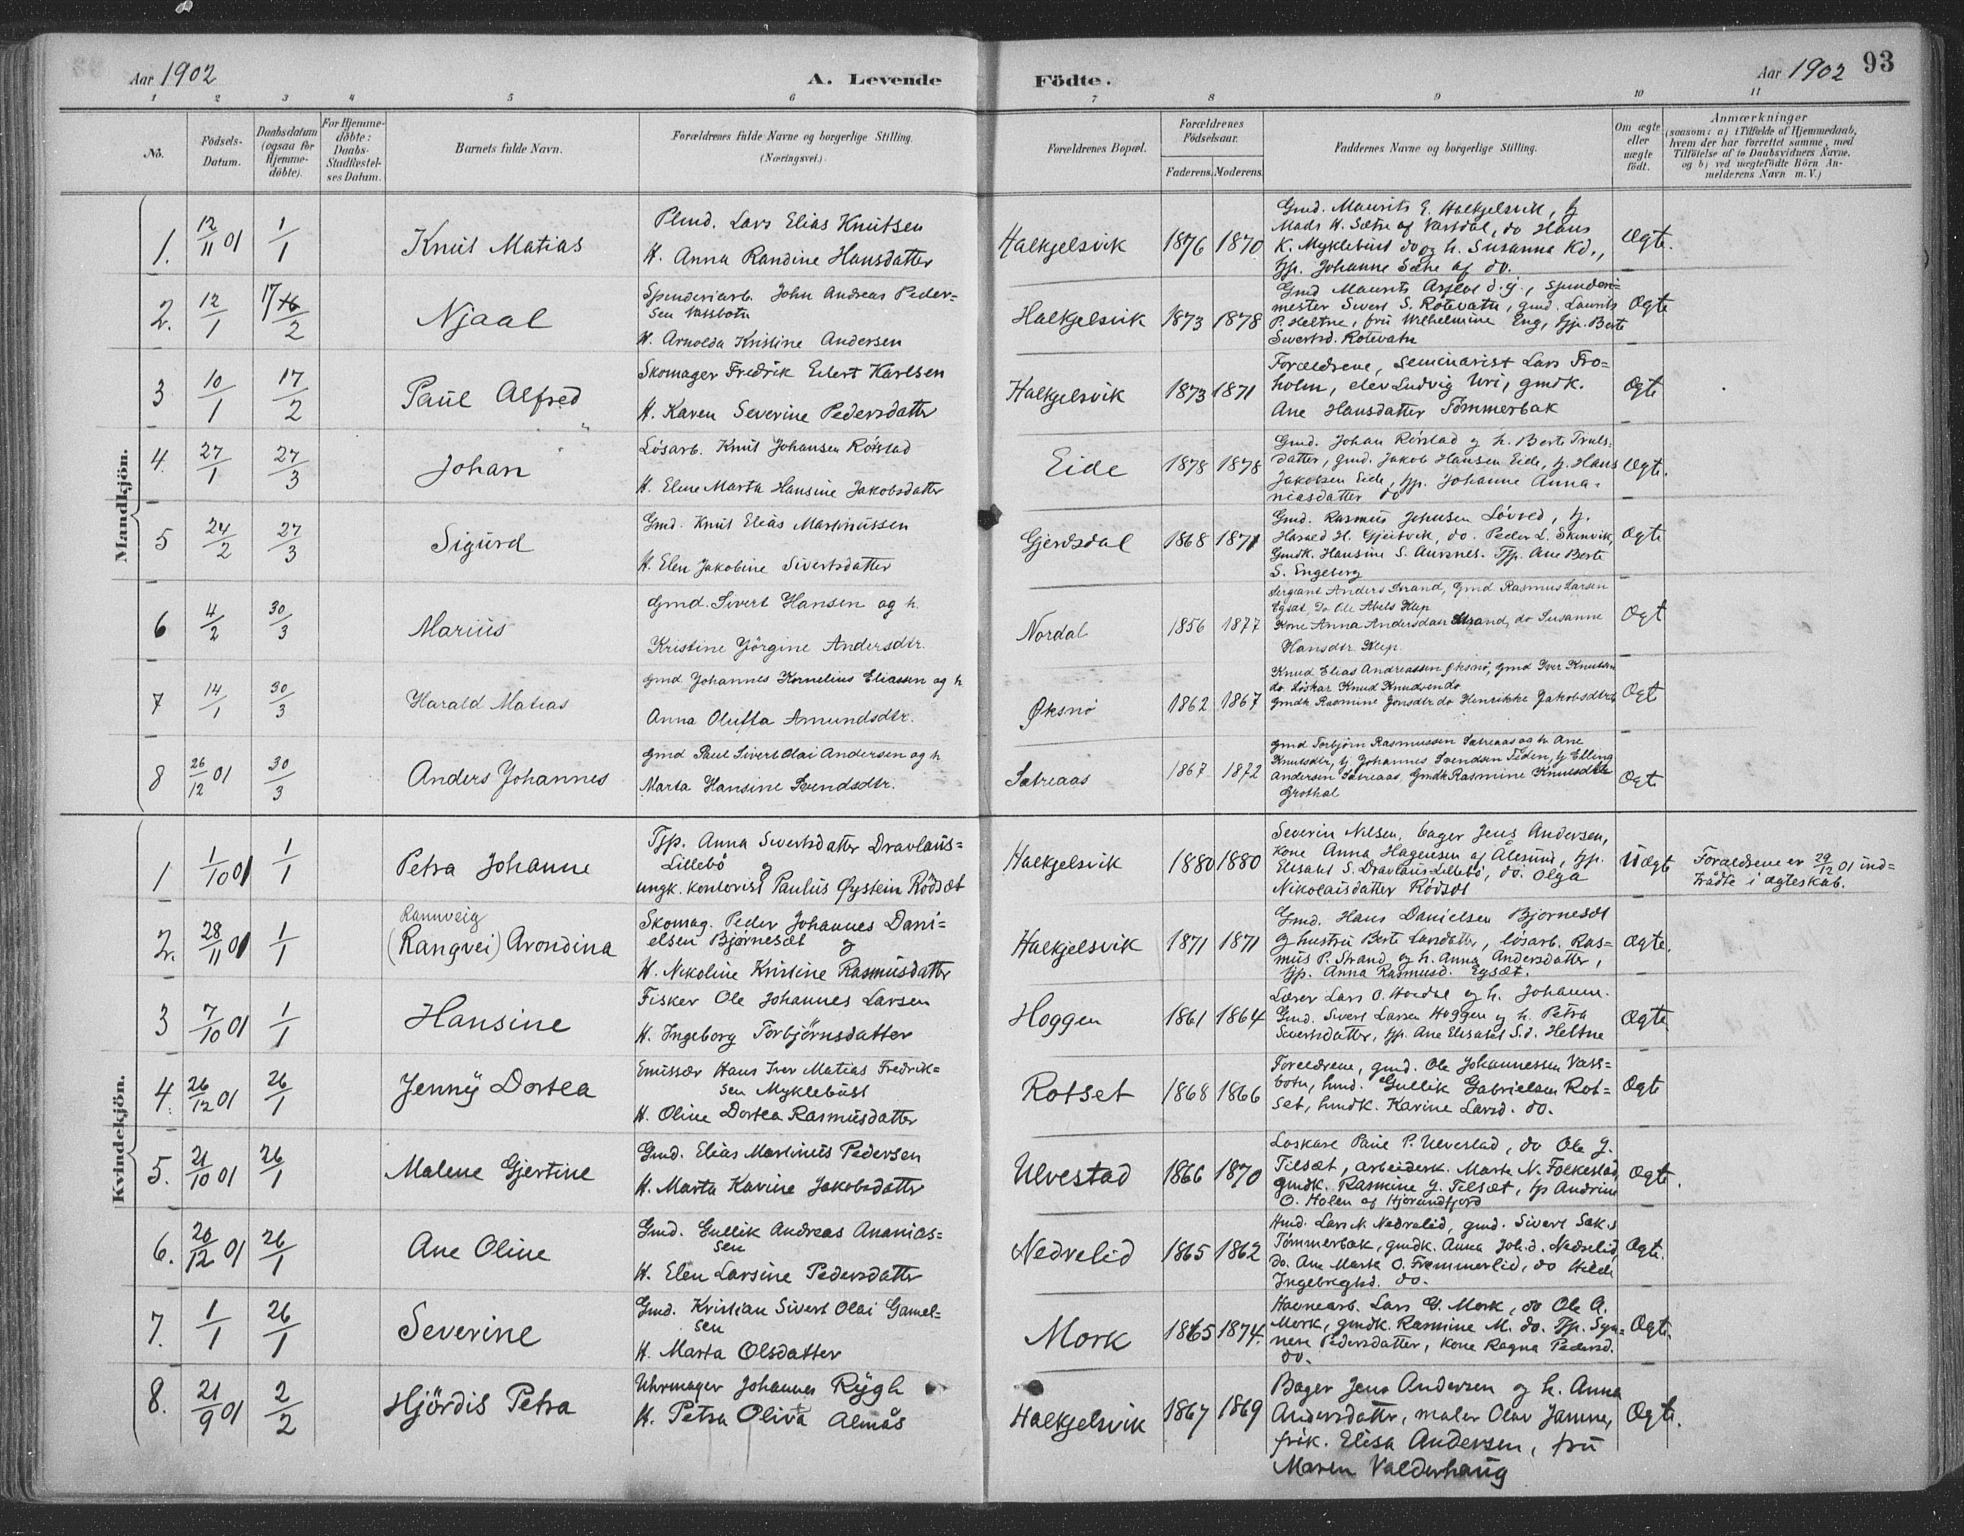 Aar 1902
A. Levende
Födte.
Aar 1902
93
1 2 3 4 5 6 7 8 9 10 11
No.
Födsels-
Datum.
Daabsdatum
(ogsaa for
Hjemme-
döbte).
For Hjemme-
döbte:
Daabs-
Stadfæstel-
ses Datum.
Barnets fulde Navn.
Forældrenes fulde Navne og borgerlige Stilling.
(Næringsvei.)
Forældrenes Bopæl.
Forældrenes
Födselsaar.
Faderens. Moderens.
Faddernes Navne og borgerlige Stilling.
Om ægte
eller
uægte
födt.
Anmærkninger
(saasom: a) i Tilfælde af Hjemmedaab,
hvem der har forrettet samme, med
Tilföielse af to Daabsvidners Navne,
og b) ved uægtefödte Börn An-
melderens Navn m. V.)
Mandkjön.
1. 12/11 01 1/1 Knut Matias
Lars Elias Knutsen
H. Anna Randine Hansdatter
Halkjelsvik 1876 1870
Gmd. Maurits E. Halkjelsvik, g
Mads H. Sætre af Vartdal, do Hans
K. Myklebust do og h. Susanna Kd.,
Tjp. Johanne Sætre af do.
Ægte.
2. 12/1 17/2 Njaal
Spinderiarb. John Andreas Peder-
sen Vassbotn
H. Arnolda Kristine Andersen
Halkjelsvik 1873 1878
Gmd Maurits d.y., spinderi-
mester Sivert S. Rotevatn, gmd. Laurits
P. Heltne, fru Wilhelmine Eng, tjp. Berte
Sivertsd. Rotevatn
Ægte
3 10/1 17/2 Paul Alfred
Skomager Fredrik Edert Karlsen
H. Karen Severine Pedersdatter
Halkjelsvik 1873 1871
Forældrene, Seminarist Lars Fro-
holm, elev Ludvig Uri, gmdk.
Ane Hansdatter Tømmerbak
Ægte
4. 27/1 27/3 Johan
Løsarb. Knut Johansen Rørstad
H. Eline Marta Hansine Jakobsdatter
Eide 1878 1878
Gmd. Johan Rørstad g h. Berte Truls-
datter, gmd. Jakob Hansen Eide, g. Hans
Jakobsen Eide, tjp. Johanne Anna-
niasdatter do
Ægte.
5 24/2 27/3 Sigurd
Gmd. Knut Elias Martinussen
H. Elen Jakobine Sivertsdatter
Gjerdsdal 1868 1871
Gmd. Rasmus Johnsen Løvred, g.
Harald H. Gjeitvik, do. Peder L. Skinvik,
Gmdk. Hansine S. Aursnes. Tjp. Ane Berte
S. Engeberg
Ægte
6 4/2 30/3 Marius
Gmd. Sivert Hansen og h.
Kristine Jörgine Andersdtr.
Nordal 1856 1877
Sergeant Anders Strand, Gmd Rasmus Larsen
Egset Do Ole Abels Klep
Kone Anna Andersdatr Strand, do Susanne
Hansdtr. Klep.
Ægt
7 14/1 30/3 Harald Matias
Gmd Johannes Kornelius Eliassen og h
Anna Oluffa Amundsdtr.
Øksnø 1862 1867
Knud Elias Andreassen Øksnø, Gmd Iver Knutsen
do. Löskar Knud Knudsen do
Gmdk Rasmine Jonsdtr do Henrikke Jakobsdtr do
Ægt
8 26/12 01 30/3 Anders Johannes
Gmd Paul Sivert Olai Andersen og h
Marta Hansine Svendsdtr.
Sætreaas 1867 1872
Gmd Torbjörn Rasmussen Sætreaas og h. Ane
Knutsdtr, g Johannes Svendsen Teden, g Elling
Andersen Sætreaas, Gmdk Rasmine Knutsdtr
Grothal
Ægt
Kvindekjön.
1 1/10 01 1/1 Petra Johanne
Tjp. Anna Sivertsdatter Dravlaus-
Lillebø og
ungk. kontorist Paulus Øystein Rødset
Halkjelsvik 1880 1880
Severin Nilsen, bager Jens Andersen,
Kone Anna Hagensen af Ålesund, tjp.
Elisabet S. Dravlaus-Lillebø, do. Olga
Nikolaisdatter Rødset
Uægt
Forældrene er 29/12 01 ind-
trådte i ægteskab.
2. 28/11 01 1/1 Rannveig
(Rangvei) Arondina
Skomag. Peder Johannes Dani-
elsen Bjørneset og
H. Nikoline Kristine Rasmusdatter
Halkjelsvik 1871 1871
Gmd. Hans Danielsen Bjørneset
g hustru Berte Larsdatter, løsarb. Ras-
mus P. Strand og h. Anna Andersdatter,
tjp. Anna Rasmusd. Egset.
Ægte.
3 7/10 01 1/1 Hansine
Fisker Ole Johannes Larsen
H. Ingeborg Torbjörnsdatter
Hoggen 1861 1864
Lærer Lars O. Hovdal og h. Johanne.
Gmd. Sivert Larsen Hoggen og h. Petra
Sivertsdatter, tjp. Ane Elisabet S.d. Heltne
Ægte.
4. 26/12 01 26/1 Jenny Dortea
Emissær Hans Iver Matias Fredrik-
sen Myklebust
H. Oline Dortea Rasmusdatter
Rotset 1868 1866
Forældrene, gmd. Ole Johannessen Vass-
botn, hmd. Gullik Gabrielsen Rot-
set, hmdk. Karine Larsd. do.
Ægte
5. 21/10 01 26/1 Malene Gjertine
Gmd. Elias Martinus Pedersen
H. Marta Karine Jakobsdatter
Ulvestad 1866 1870
Løskare Paul P. Ulvestad, do Ole J.
Tilsæt, arbeidersk. Marte N. Folkestad,
gmdk. Rasmine J. Tilsæt, tjp Andrine
O. Holen af Hjørundfjord
Ægte.
6. 20/12 01 26/1 Ane Oline
Gmd. Gullik Andreas Ananias-
sen
H. Elen Larsine Pedersdatter
Nedrelid 1865 1862
Hmd. Lars N. Nedrelid, gmd. Sivert Sak.s
Tømmerbak, gmdk. Anna Joh.d. Nedrelid,
do. Ane Marta O. Fremmerlid, do
Ingebregtsd. do.
Ægte.
7. 1/1 26/1 Severine
Gmd. Kristian Sivert Olai Gamel-
sen
H. Marta Olsdatter
Mork 1865 1874.
Havnearb. Lars G. Mork, do Ole A.
Mork, gmdk. Rasmine M. do. Tjp. Syn-
nøve Pedersdatter, kone Ragna Pedersd.
do.
Ægte.
8. 21/9 01 2/2 Hjördis Petra
Uhrmager Johannes Rygh
H. Petra Oliva Almås
Halkjelsvik 1867 1869
Bager Jens Andersen og h. Anna
Andersdatter, maler Olav Jamne,
frk. Elisa Andersen, fru
Maren Valderhaug
Ægte.